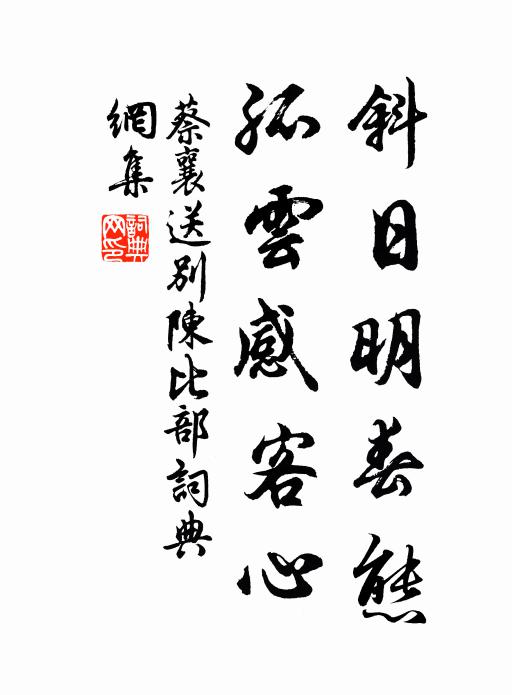 斜日明春態
孤雲感客心
蔡襄送別陳比部詞典
網集
詞典網印